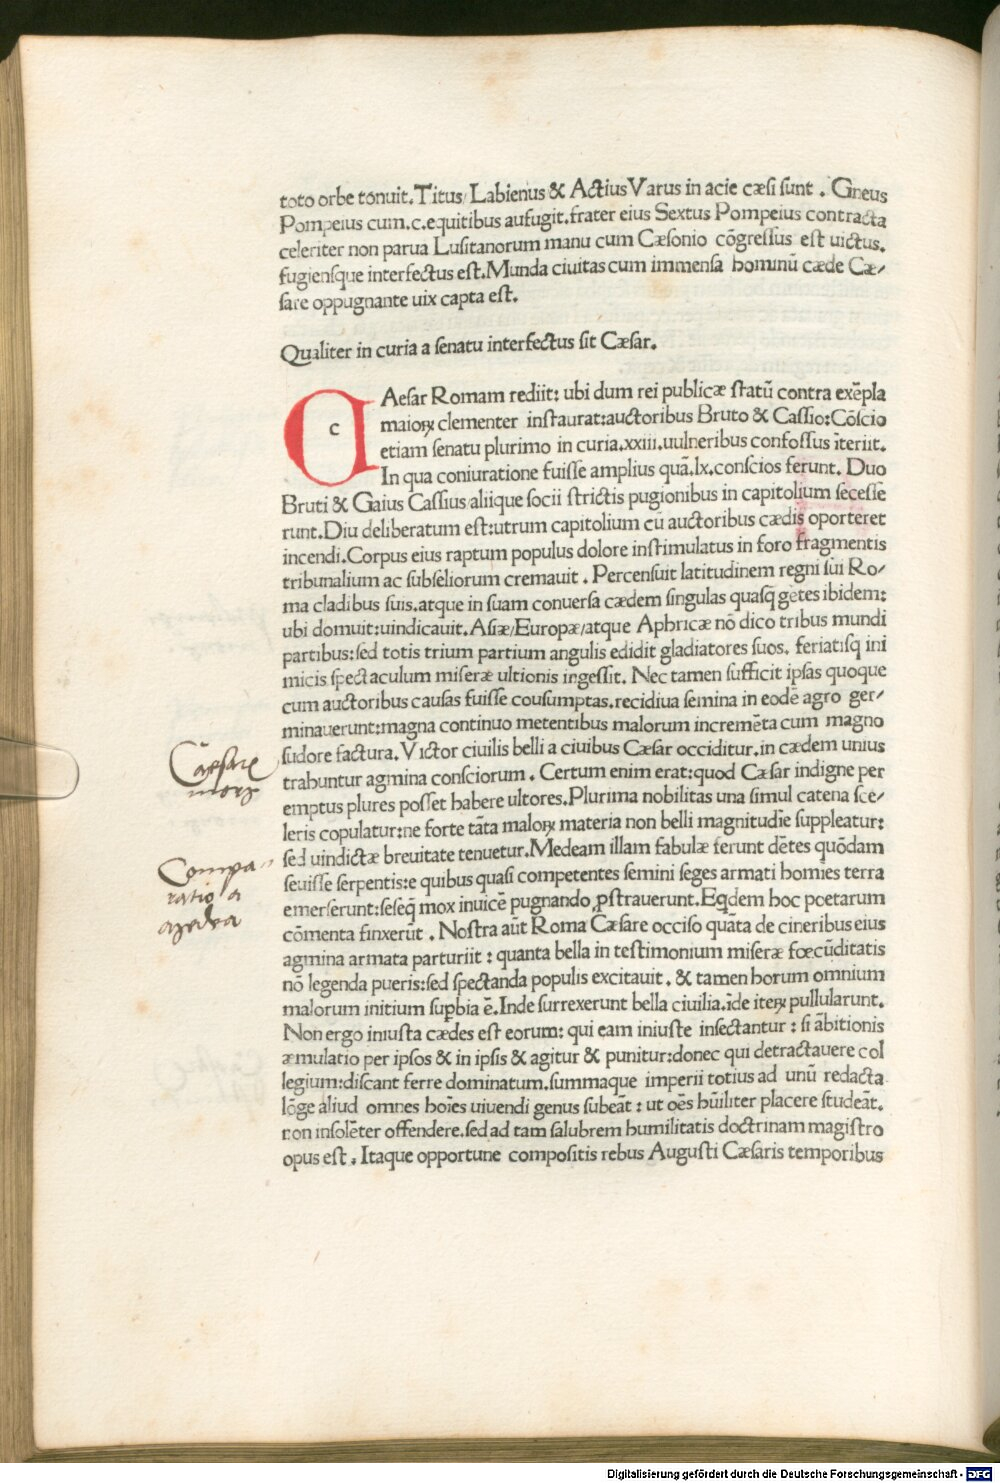 toto orbe tonuit. Titus/ Labienus & Actius Varus in acie cæsi sunt . Gneus
Pompeius cum.c.equitibus aufugit.frater eius Sextus Pompeius contracta
celeriter non parua Lusitanorum manu cum Cæsonio cōgressus est uictus.
fugiensque interfectus est.Munda ciuitas cum immensa hominū cæde Cæ/
sare oppugnante uix capta est.
Qualiter in curia a senatu interfectus sit Cæsar.
c
Aesar Romam rediit: ubi dum rei publicæ statū contra exēpla
maioꝝ clementer instaurat:auctoribus Bruto & Cassio:Cōscio
etiam senatu plurimo in curia.xxiii.uulneribus confossus īteriit.
In qua coniuratione fuisse amplius quā.lx.conscios ferunt. Duo
Bruti & Gaius Cassius/aliique socii strictis pugionibus in capitolium secesse
runt.Diu deliberatum est:utrum capitolium cū auctoribus cædis oporteret
incendi.Corpus eius raptum populus dolore instimulatus in foro fragmentis
tribunalium ac subseliorum cremauit . Percensuit latitudinem regni sui Ro/
ma cladibus suis.atque in suam conuersa cædem singulas quasq̄ gētes ibidem:
ubi domuit:uindicauit.Asiæ/Europæ/atque Aphricæ nō dico tribus mundi
partibus:sed totis trium partium angulis edidit gladiatores suos. feriatisq̄ ini
micis spectaculum miseræ ultionis ingessit. Nec tamen sufficit ipsas quoque
cum auctoribus causas fuisse cousumptas.recidiua semina in eodē agro ger/
minauerunt:magna continuo metentibus malorum incremēta cum magno
sudore factura.Victor ciuilis belli a ciuibus Cæsar occiditur.in cædem unius
trahuntur agmina consciorum . Certum enim erat:quod Cæsar indigne per
emptus plures posset habere ultores.Plurima nobilitas una simul catena sce/
leris copulatur:ne forte tāta maloꝝ materia non belli magnitudīe suppleatur:
sed uindictæ breuitate tenuetur.Medeam illam fabulæ ferunt dētes quōdam
seuisse serpentis:e quibus quasi competentes semini seges armati homīes terra
emerserunt:seseq̄ mox inuicē pugnando ꝓstrauerunt.Eqdem hoc poetarum
cōmenta finxerūt . Nostra aūt Roma Cæsare occiso quāta de cineribus eius
agmina armata parturiit : quanta bella in testimonium miseræ fœcūditatis
nō legenda pueris:sed spectanda populis excitauit . & tamen horum omnium
malorum initium suꝑbia ē.Inde surrexerunt bella ciuilia.īde iteꝝ pullularunt.
Non ergo iniusta cædes est eorum: qui eam iniuste insectantur : si ābitionis
æmulatio per ipsos & in ipsis & agitur & punitur:donec qui detractauere col
legium:discant ferre dominatum.summaque imperii totius ad unū redacta
lōge aliud omnes hoīes uiuendi genus subeāt : ut oēs hūiliter placere studeāt.
non insolēter offendere.sed ad tam salubrem humilitatis doctrinam magistro
opus est . Itaque opportune compositis rebus Augusti Cæsaris temporibus
Compa
ratio a
Digitalisierung gefördert durch die Deutsche Forschungsgemeinschaft - DFG